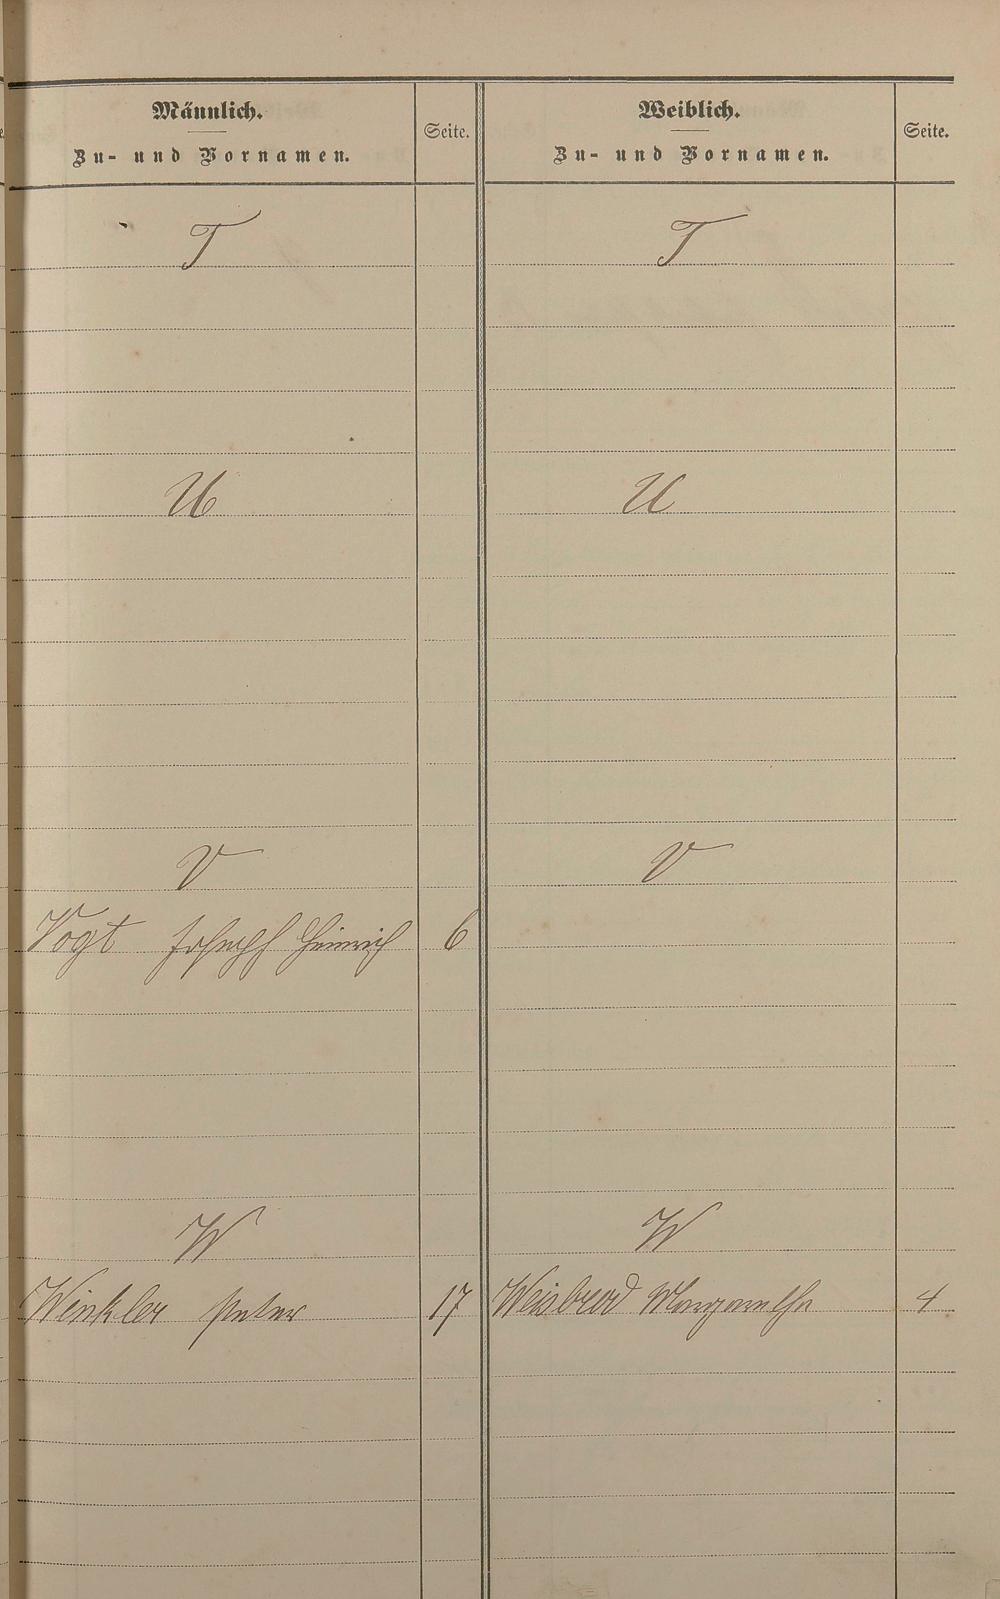 Männlich. Seite. Weiblich. Seite.
Zu- und Vornamen. Zu- und Vornamen.
T T
U U
V V
Vogt Joseph Heinrich 6
W W
Winkler Peter 17 Weisbrod Margarethe 4